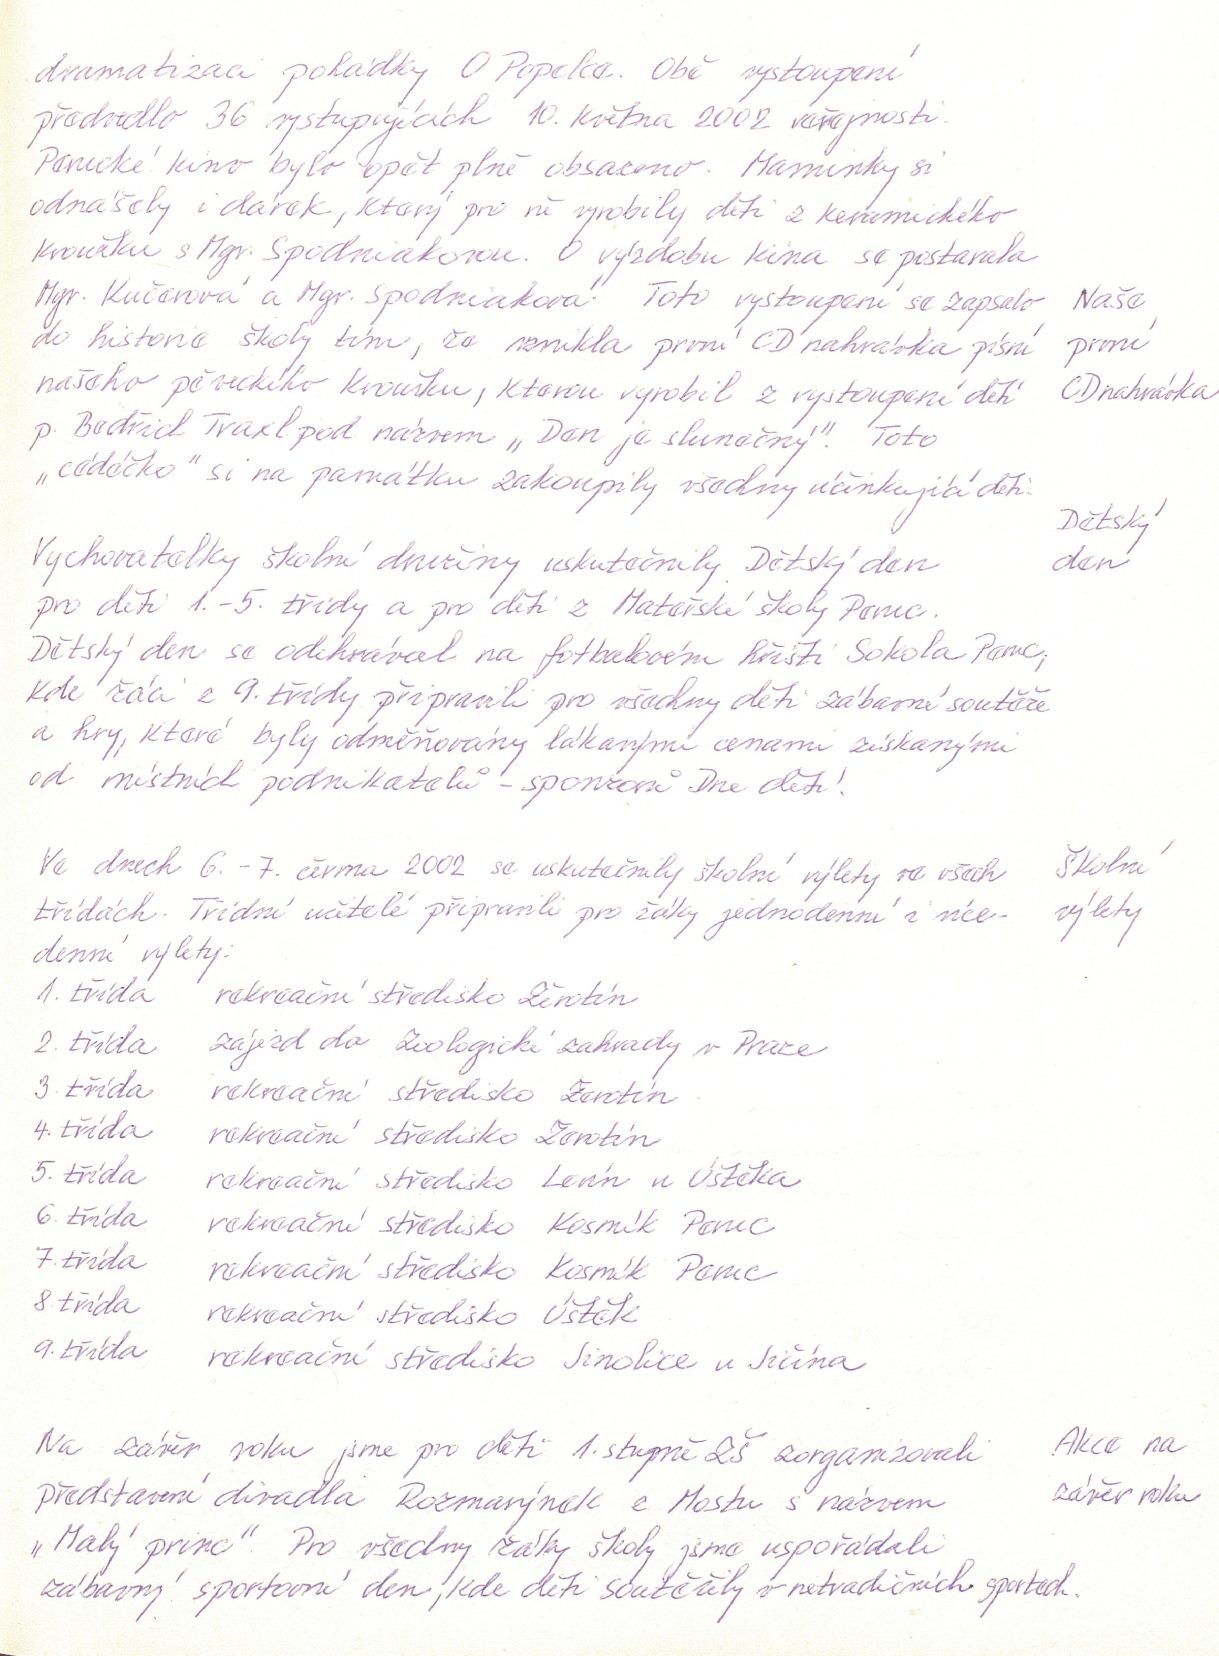 dramatizaci pohádky O Popelce. Obě vystoupení
předvedlo 36 vystupujících 10. května 2002 veřejnosti.
Perucké kino bylo opět plně obsazeno. Maminky si
odnášely i dárek, který pro ně vyrobily děti z keramického
kroužku s Mgr. Spodniakovou. O výzdobu kina se postarala
Mgr. Kučerová a Mgr. Spodniaková. Toto vystoupení se zapsalo
do historie školy tím, že vznikla první CD nahrávka písní
našeho pěveckého kroužku, kterou vyrobil z vystoupení dětí
p. Bedřich Traxl pod názvem „Den je slunečný". Toto
„cédéčko" si na památku zakoupily všechny účinkující děti.
Naše
první
CD nahrávka
Vychovatelky školní družiny uskutečnily Dětský den
pro děti 1.-5. třídy a pro děti z Mateřské školy Peruc.
Dětský den se odehrával na fotbalovém hřišti Sokola Peruc,
kde žáci z 9. třídy připravili pro všechny děti zábavné soutěže
a hry, které byly odměňovány lákavými cenami získanými
od místních podnikatelů – sponzorů Dne dětí.
Dětský
den
Ve dnech 6. – 7. června 2002 se uskutečnily školní výlety ve všech
třídách. Třídní učitelé připravili pro žáky jednodenní i více-
denní výlety:
Školní
výlety
1. třída rekreační středisko Žerotín
2. třída zájezd do Zoologické zahrady v Praze
3. třída rekreační středisko Žerotín
4. třída rekreační středisko Žerotín
5. třída rekreační středisko Levín u Úštěka
6. třída rekreační středisko Kosmík Peruc
7. třída rekreační středisko Kosmík Peruc
8. třída rekreační středisko Úštěk
9. třída rekreační středisko Jinolice u Jičína
Na závěr roku jsme pro děti 1. stupně ZŠ zorganizovali
představení divadla Rozmarýnek z Mostu s názvem
„Malý princ". Pro všechny žáky školy jsme uspořádali
zábavný sportovní den, kde děti soutěžily v netradičních sportech.
Akce na
závěr roku